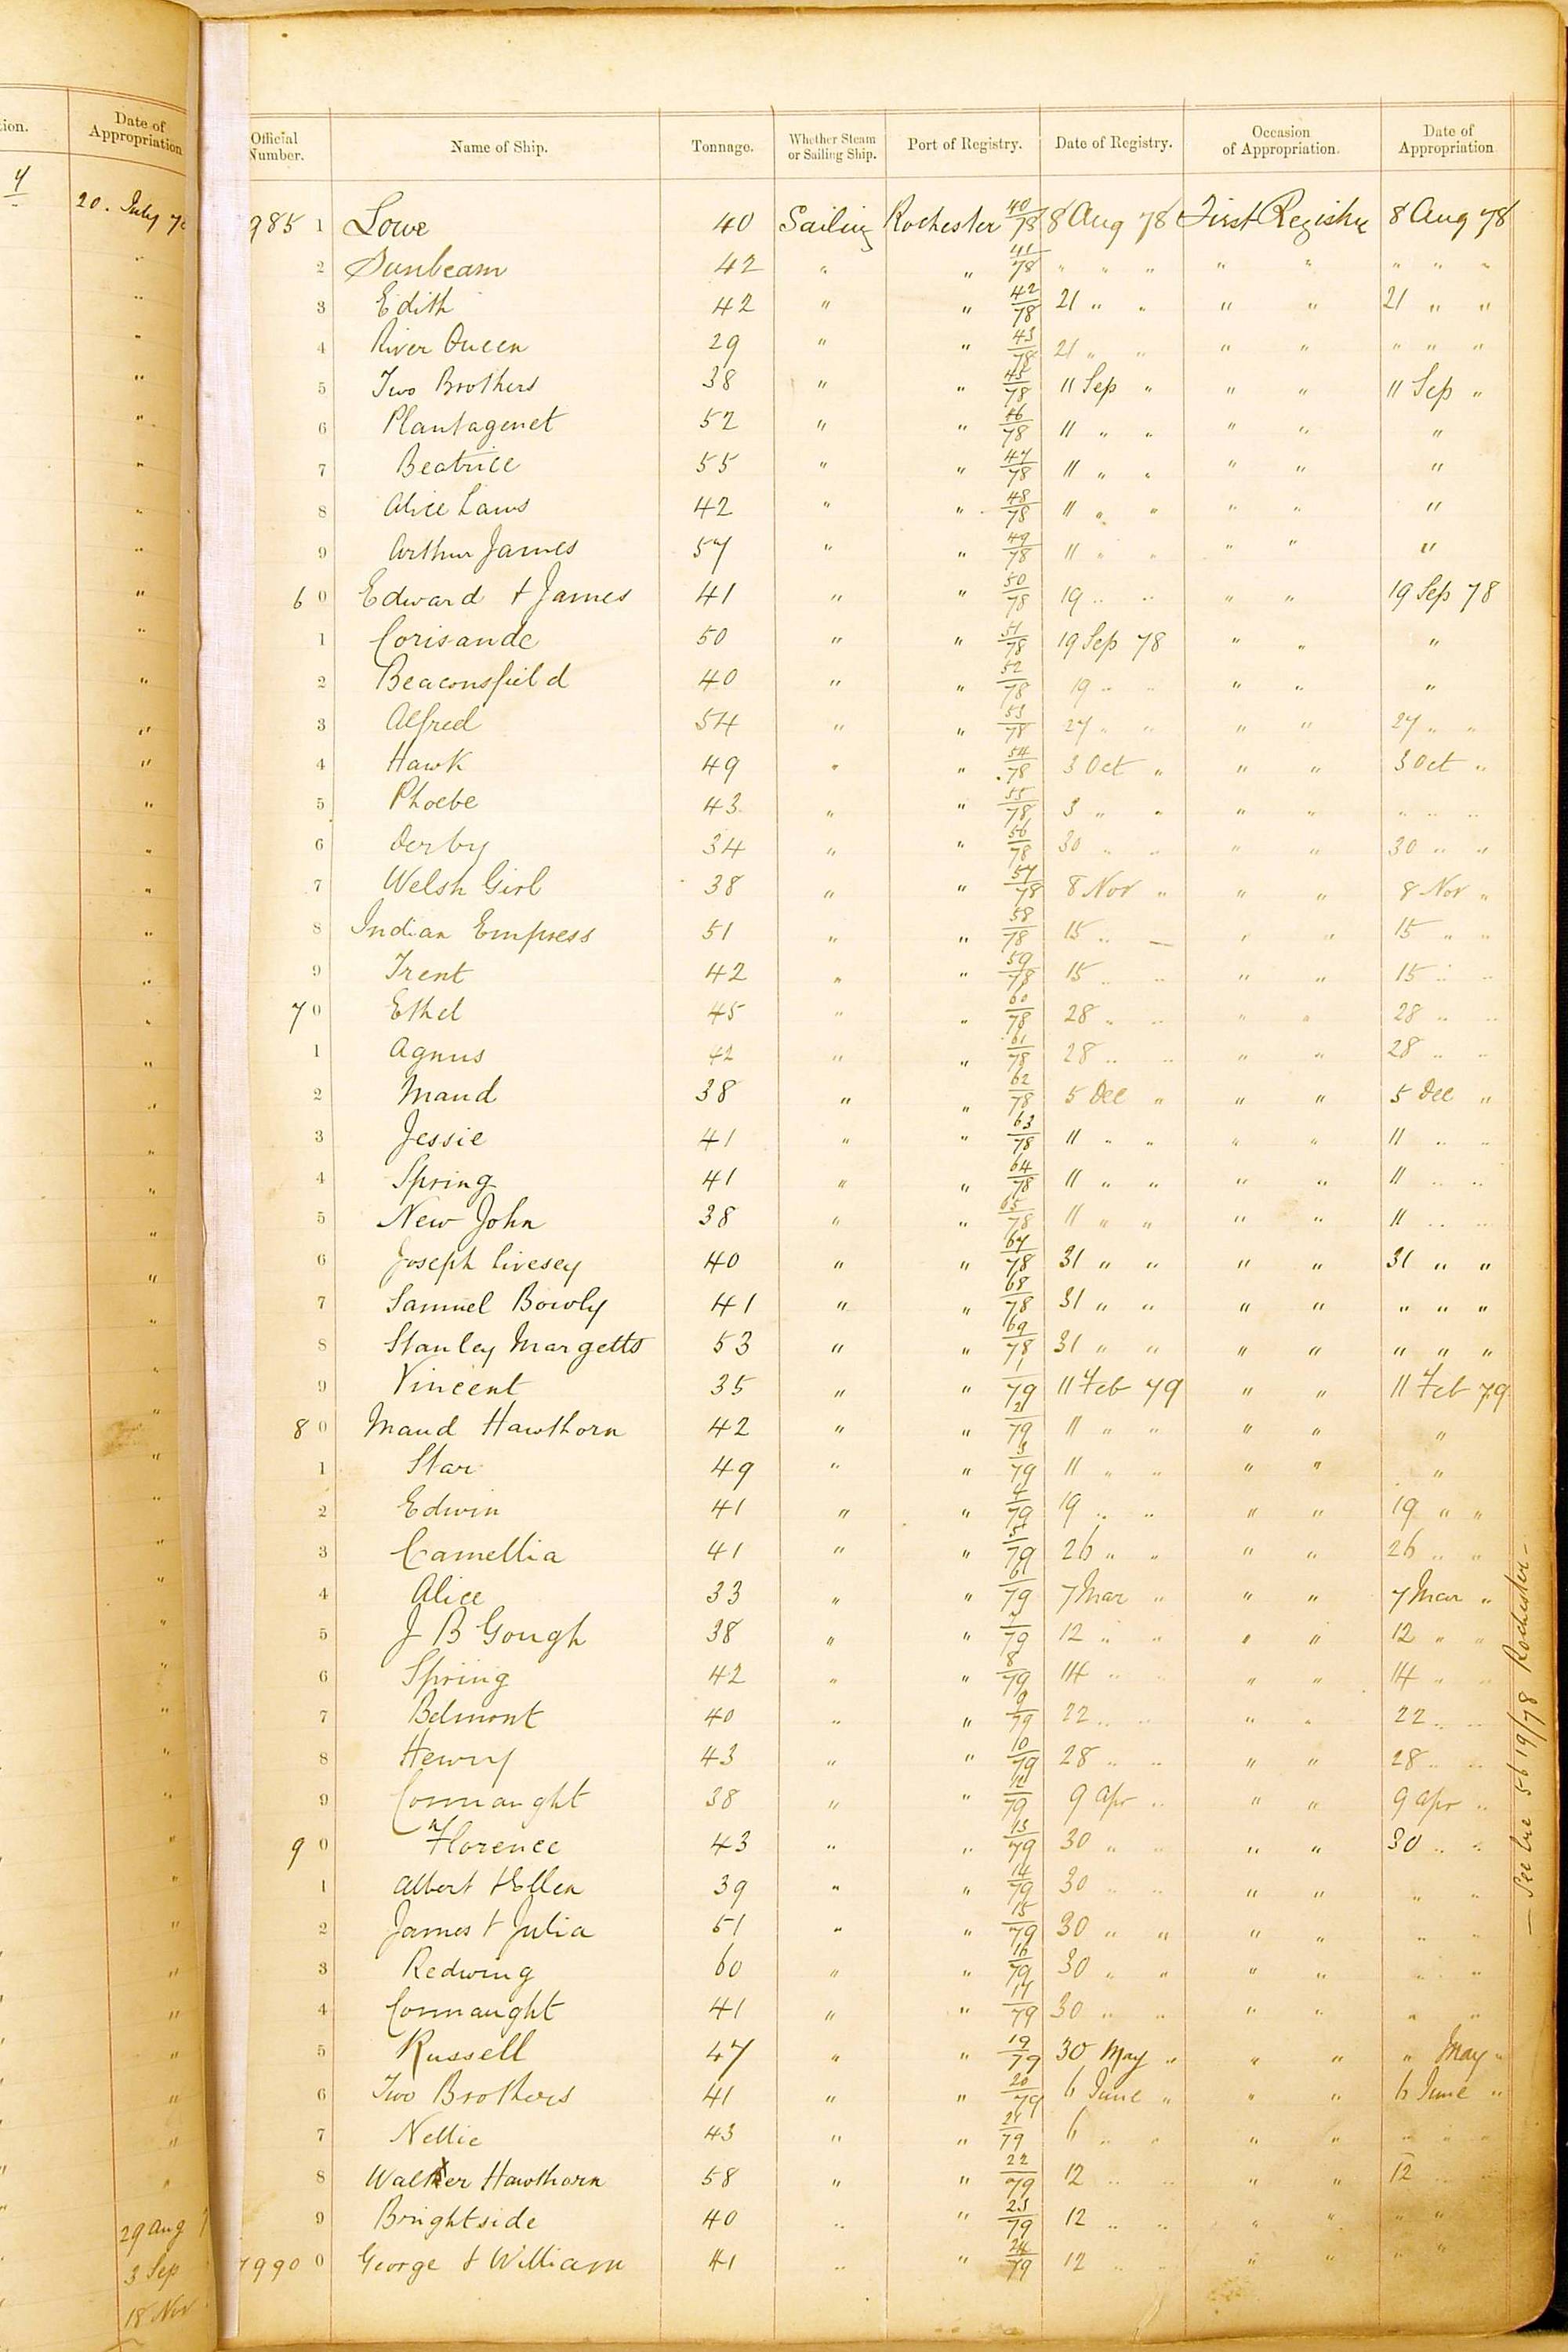 tion.
Date of Appropriation
4
20. July 7
29 Aug
3 Sep
18 Nov
Official Number. Name of Ship. Tonnage. Whether Steam or Sailing Ship. Port of Registry. Date of Registry. Occasion of Appropriation. Date of Appropriation
985 1 Lowe 40 Sailing Rochester 40/78 8 Aug 78 First Registry 8 Aug 78
2 Sunbeam 42 " " 41/78 " " " " " " " "
3 Edith 42 " " 42/78 21 " " " " 21 " "
4 River Queen 29 " " 43/78 21 " " " " " " "
5 Two Brothers 38 " " 45/78 11 Sep " " " 11 Sep "
6 Plantagenet 52 " " 46/78 11 " " " " "
7 Beatrice 55 " " 47/78 11 " " " " "
8 Alice Laws 42 " " 48/78 11 " " " " "
9 Arthur James 57 " " 49/78 11 " " " " "
6 0 Edward & James 41 " " 50/78 19 " " " " 19 Sep 78
1 Corisande 50 " " 51/78 19 Sep 78 " " "
2 Beaconsfield 40 " " 52/78 19 " " " " "
3 Alfred 54 " " 53/78 27 " " " " 27 " "
4 Hawk 49 " " 54/78 3 Oct " " " 3 Oct "
5 Phoebe 43 " " 55/78 3 " " " " " " "
6 Derby 34 " " 56/78 30 " " " " 30 " "
7 Welsh Girl 38 " " 57/78 8 Nov " " " 8 Nov "
8 Indian Empress 51 " " 58/78 15 " — " " 15 " "
9 Trent 42 " " 59/78 15 " " " " 15 " "
7 0 Ethel 45 " " 60/78 28 " " " " 28 " "
1 Agnus 42 " " 61/78 28 " " " " 28 " "
2 Maud 38 " " 62/78 5 Dec " " " 5 Dec "
3 Jessie 41 " " 63/78 11 " " " " 11 " "
4 Spring 41 " " 64/78 11 " " " " 11 " "
5 New John 38 " " 65/78 11 " " " " 11 " "
6 Joseph Livesey 40 " " 67/78 31 " " " " 31 " "
7 Samuel Bowly 41 " " 68/78 31 " " " " " " "
8 Stanley Margetts 53 " " 69/78 31 " " " " " " "
9 Vincent 35 " " 1/79 11 Feb 79 " " 11 Feb 79
8 0 Maud Hawthorn 42 " " 2/79 11 " " " " "
1 Star 49 " " 3/79 11 " " " " "
2 Edwin 41 " " 4/79 19 " " " " 19 " "
3 Camellia 41 " " 5/79 26 " " " " 26 " "
4 Alice 33 " " 6/79 7 Mar " " " 7 Mar "
5 J B Gough 38 " " 7/79 12 " " " " 12 " "
6 Spring 42 " " 8/79 14 " " " " 14 " "
7 Belmont 40 " " 9/79 22 " " " " 22 " "
8 Henry 43 " " 10/79 28 " " " " 28 " "
9 Connaught 38 " " 12/79 9 Apr " " " 9 Apr "
9 0 Florence 43 " " 13/79 30 " " " " 30 " "
1 Albert & Ellen 39 " " 14/79 30 " " " " " "
2 James & Julia 51 " " 15/79 30 " " " " " "
3 Redwing 60 " " 16/79 30 " " " " " "
4 Connaught 41 " " 17/79 30 " " " " " "
5 Russell 47 " " 19/79 30 May " " " " May "
6 Two Brothers 41 " " 20/79 6 June " " " 6 June "
7 Nellie 43 " " 21/79 6 " " " " " " "
8 Walter Hawthorn 58 " " 22/79 12 " " " " 12 " "
9 Brightside 40 " " 23/79 12 " " " " " "
7990 0 George & William 41 " " 24/79 12 " " " " " "
5619/78 Rochester —